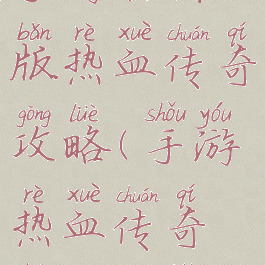 bǎn rè xuè chuán qí
版热血传奇
gōng lüè shǒu yóu
攻略(手游
rè xuè chuán qí
热血传奇